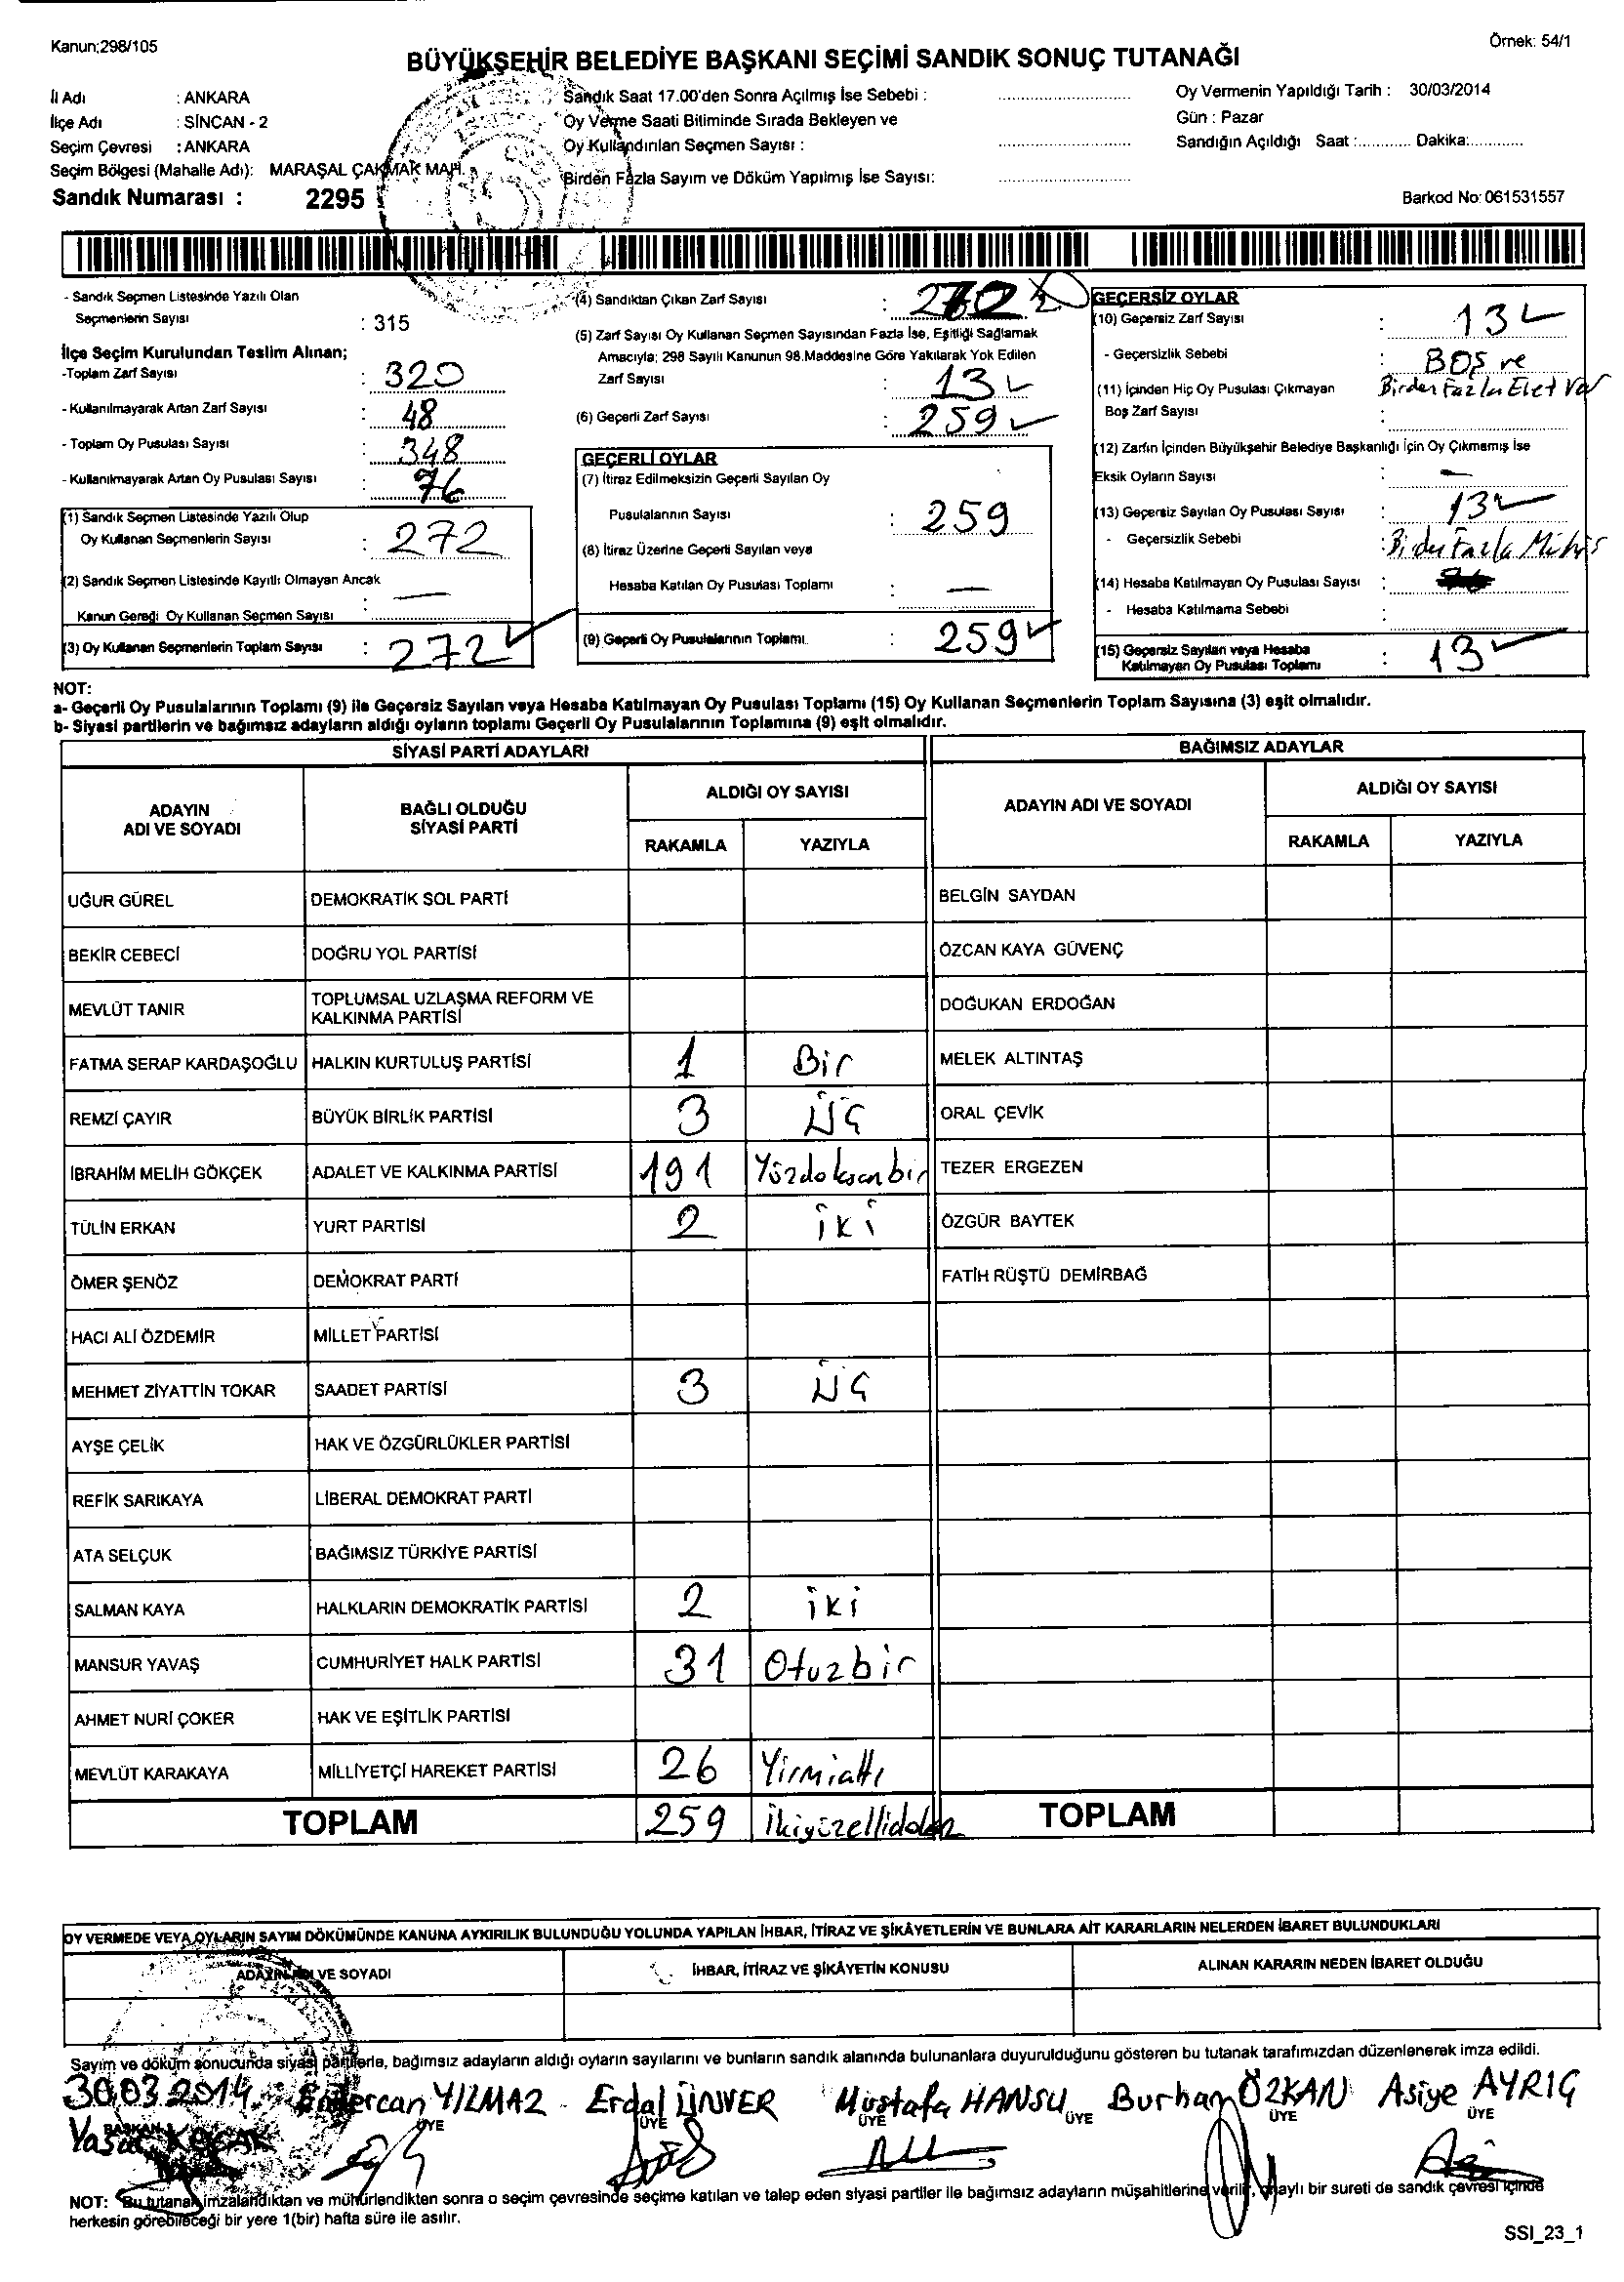 Kanun;298/105
Örnek: 54/1
BÜYÜKŞEHİR BELEDİYE BAŞKANI SEÇİMİ SANDIK SONUÇ TUTANAĞI
İl Adı : ANKARA
İlçe Adı : SİNCAN - 2
Seçim Çevresi : ANKARA
Seçim Bölgesi (Mahalle Adı): MARAŞAL ÇAKMAK MAH.
Sandık Numarası : 2295
Sandık Saat 17.00'den Sonra Açılmış İse Sebebi :
Oy Verme Saati Bitiminde Sırada Bekleyen ve
Oy Kullandırılan Seçmen Sayısı :
Birden Fazla Sayım ve Döküm Yapılmış İse Sayısı:
Oy Vermenin Yapıldığı Tarih : 30/03/2014
Gün : Pazar
Sandığın Açıldığı Saat :............ Dakika:............
Barkod No: 061531557
- Sandık Seçmen Listesinde Yazılı Olan
Seçmenlerin Sayısı : 315
İlçe Seçim Kurulundan Teslim Alınan;
-Toplam Zarf Sayısı : 320
- Kullanılmayarak Artan Zarf Sayısı : 48
- Toplam Oy Pusulası Sayısı : 348
- Kullanılmayarak Artan Oy Pusulası Sayısı : 76
(1) Sandık Seçmen Listesinde Yazılı Olup
Oy Kullanan Seçmenlerin Sayısı : 272
(2) Sandık Seçmen Listesinde Kayıtlı Olmayan Ancak
Kanun Gereği Oy Kullanan Seçmen Sayısı : —
(3) Oy Kullanan Seçmenlerin Toplam Sayısı : 272
(4) Sandıktan Çıkan Zarf Sayısı :
(5) Zarf Sayısı Oy Kullanan Seçmen Sayısından Fazla İse, Eşitliği Sağlamak
Amacıyla; 298 Sayılı Kanunun 98.Maddesine Göre Yakılarak Yok Edilen
Zarf Sayısı : 13
(6) Geçerli Zarf Sayısı : 259
GEÇERLİ OYLAR
(7) İtiraz Edilmeksizin Geçerli Sayılan Oy
Pusulalarının Sayısı : 259
(8) İtiraz Üzerine Geçerli Sayılan veya
Hesaba Katılan Oy Pusulası Toplamı : —
(9) Geçerli Oy Pusulalarının Toplamı. : 259
GEÇERSİZ OYLAR
(10) Geçersiz Zarf Sayısı : 13
- Geçersizlik Sebebi : BOŞ ve
Birden Fazla Evet Var
(11) İçinden Hiç Oy Pusulası Çıkmayan
Boş Zarf Sayısı :
(12) Zarfın İçinden Büyükşehir Belediye Başkanlığı İçin Oy Çıkmamış İse
Eksik Oyların Sayısı : —
(13) Geçersiz Sayılan Oy Pusulası Sayısı : 13
- Geçersizlik Sebebi : Birden Fazla
(14) Hesaba Katılmayan Oy Pusulası Sayısı :
- Hesaba Katılmama Sebebi :
(15) Geçersiz Sayılan veya Hesaba
Katılmayan Oy Pusulası Toplamı : 13
NOT:
a- Geçerli Oy Pusulalarının Toplamı (9) ile Geçersiz Sayılan veya Hesaba Katılmayan Oy Pusulası Toplamı (15) Oy Kullanan Seçmenlerin Toplam Sayısına (3) eşit olmalıdır.
b- Siyasi partilerin ve bağımsız adayların aldığı oyların toplamı Geçerli Oy Pusulalarının Toplamına (9) eşit olmalıdır.
SİYASİ PARTİ ADAYLARI
ADAYIN ADI VE SOYADI
BAĞLI OLDUĞU SİYASİ PARTİ
ALDIĞI OY SAYISI
RAKAMLA YAZIYLA
UĞUR GÜREL DEMOKRATİK SOL PARTİ
BEKİR CEBECİ DOĞRU YOL PARTİSİ
MEVLÜT TANIR TOPLUMSAL UZLAŞMA REFORM VE
KALKINMA PARTİSİ
FATMA SERAP KARDAŞOĞLU HALKIN KURTULUŞ PARTİSİ 1 Bir
REMZİ ÇAYIR BÜYÜK BİRLİK PARTİSİ 3 ÜÇ
İBRAHİM MELİH GÖKÇEK ADALET VE KALKINMA PARTİSİ 191 Yüzdoksanbir
TÜLİN ERKAN YURT PARTİSİ 2 iki
ÖMER ŞENÖZ DEMOKRAT PARTİ
HACI ALİ ÖZDEMİR MİLLET PARTİSİ
MEHMET ZİYATTİN TOKAR SAADET PARTİSİ 3 ÜÇ
AYŞE ÇELİK HAK VE ÖZGÜRLÜKLER PARTİSİ
REFİK SARIKAYA LİBERAL DEMOKRAT PARTİ
ATA SELÇUK BAĞIMSIZ TÜRKİYE PARTİSİ
SALMAN KAYA HALKLARIN DEMOKRATİK PARTİSİ 2 iki
MANSUR YAVAŞ CUMHURİYET HALK PARTİSİ 31 Otuzbir
AHMET NURİ ÇOKER HAK VE EŞİTLİK PARTİSİ
MEVLÜT KARAKAYA MİLLİYETÇİ HAREKET PARTİSİ 26 Yirmialtı
TOPLAM 259 ikiyüzellidokuz
BAĞIMSIZ ADAYLAR
ADAYIN ADI VE SOYADI
ALDIĞI OY SAYISI
RAKAMLA YAZIYLA
BELGİN SAYDAN
ÖZCAN KAYA GÜVENÇ
DOĞUKAN ERDOĞAN
MELEK ALTINTAŞ
ORAL ÇEVİK
TEZER ERGEZEN
ÖZGÜR BAYTEK
FATİH RÜŞTÜ DEMİRBAĞ
TOPLAM
OY VERMEDE VEYA OYLARIN SAYIM DÖKÜMÜNDE KANUNA AYKIRILIK BULUNDUĞU YOLUNDA YAPILAN İHBAR, İTİRAZ VE ŞİKÂYETLERİN VE BUNLARA AİT KARARLARIN NELERDEN İBARET BULUNDUKLARI
ADAYIN ADI VE SOYADI
İHBAR, İTİRAZ VE ŞİKÂYETİN KONUSU
ALINAN KARARIN NEDEN İBARET OLDUĞU
Sayım ve döküm sonucunda siyasi partilerle, bağımsız adayların aldığı oyların sayılarını ve bunların sandık alanında bulunanlara duyurulduğunu gösteren bu tutanak tarafımızdan düzenlenerek imza edildi.
30.03.2014 Endercan YILMAZ Erdal ÜNVER Mustafa HANSU Burhan ÖZKAN Asiye AYRIÇ
BAŞKAN ÜYE ÜYE ÜYE ÜYE ÜYE ÜYE
Yaşar KOÇAK
NOT: Bu tutanak imzalandıktan ve mühürlendikten sonra o seçim çevresinde seçime katılan ve talep eden siyasi partiler ile bağımsız adayların müşahitlerine verilir, onaylı bir sureti de sandık çevresi içinde
herkesin görebileceği bir yere 1(bir) hafta süre ile asılır.
SSI_23_1